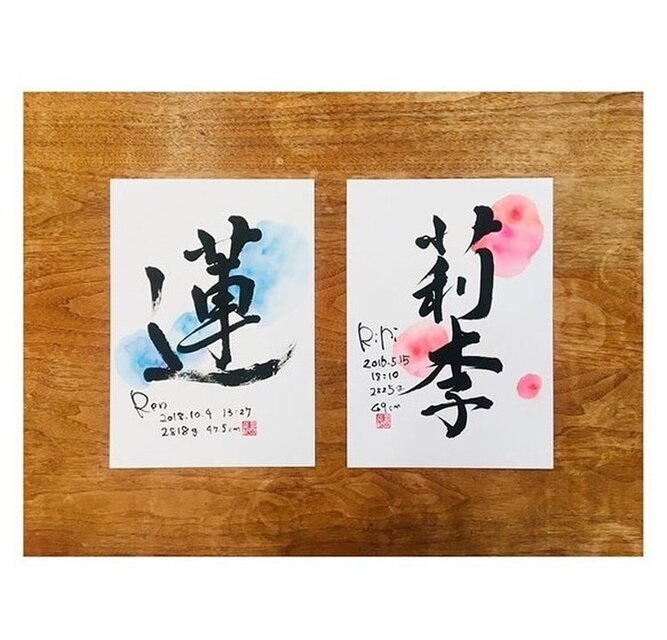 蓮
Ren
2018.10.9 13:27
2818g 47.5cm
莉李
RiRi
2016.5.15
18:10
2825g
49cm